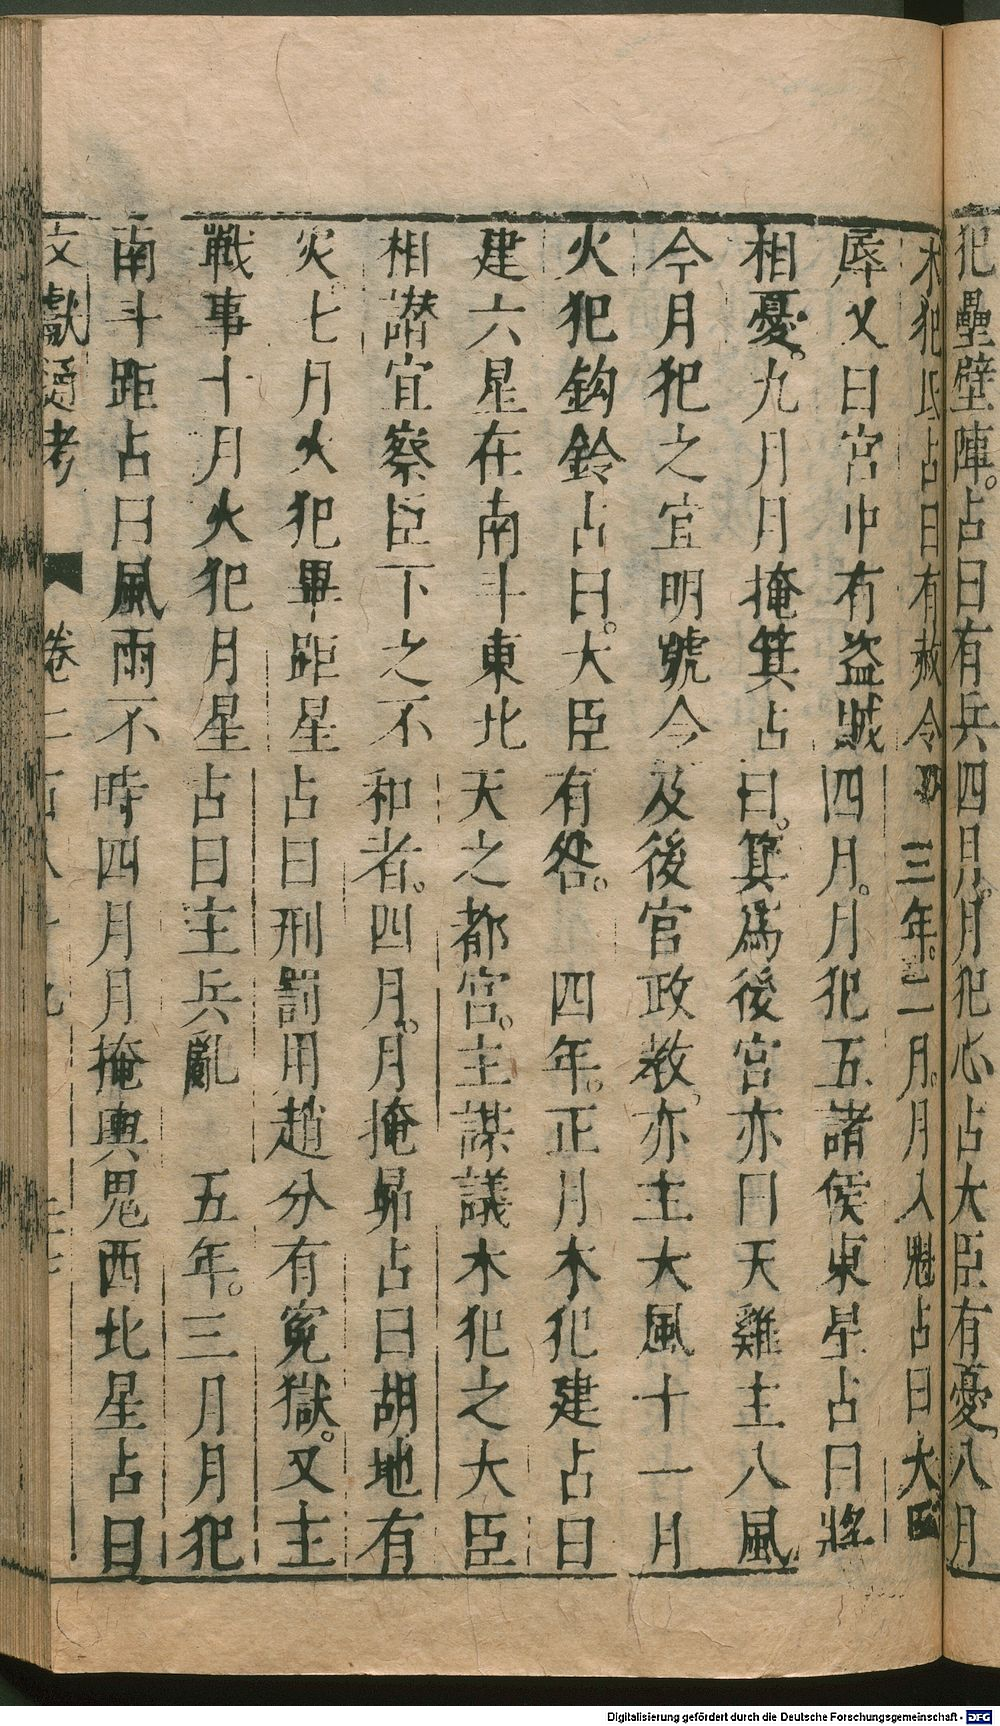 犯壘壁陣。占曰有兵四月。月犯心占大臣有憂。八月
木犯氐占曰有赦令 三年。二月。月入魁占曰大臣
辱又曰宮中有盜賊四月。月犯五諸侯東星占曰將
相憂。九月月掩箕占曰。箕爲後宮亦曰天雞主八風
今月犯之宜明號令及後宮政教。亦主大風十一月
火犯鈎鈴占曰。大臣有咎。 四年。正月木犯建占曰
建六星在南斗東北天之都宮。主謀議木犯之大臣
相譖宜察臣下之不和者。四月。月掩昴占曰胡地有
災七月火犯畢距星占曰刑罰用趙分有寃獄。又主
戰事十月火犯月星占曰主兵亂 五年。三月月犯
南斗距占曰風雨不時四月月掩輿鬼西北星占曰
文獻通考 卷二百八十九
Digitalisierung gefördert durch die Deutsche Forschungsgemeinschaft - DFG